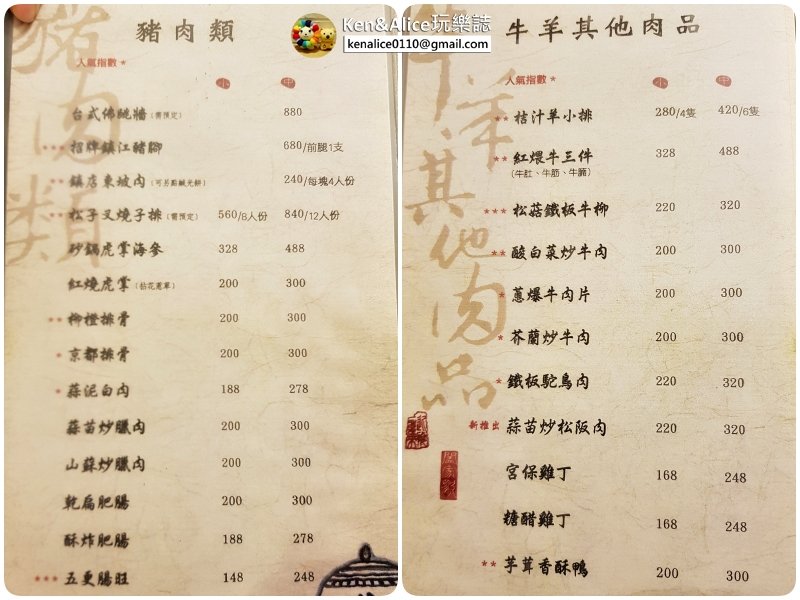 Ken&Alice玩樂誌
kenalice0110@gmail.com
豬肉類
豬肉類
人氣指數 ★
小 中
台式佛跳牆(需預定) 880
★★★ 招牌鎮江豬腳 680/前腿1支
★★ 鎮店東坡肉 240/每塊4人份
★★ 松子叉燒子排(需預定) 560/8人份 840/12人份
砂鍋虎掌海參 328 488
紅燒虎掌 200 300
★★ 柳橙排骨 200 300
★ 京都排骨 200 300
★ 蒜泥白肉 188 278
蒜苗炒臘肉 200 300
山蘇炒臘肉 200 300
乾扁肥腸 200 300
酥炸肥腸 188 278
★★★ 五更腸旺 148 248
牛羊其他肉品
牛羊其他肉品
人氣指數 ★
小 中
★★ 桔汁羊小排 280/4隻 420/6隻
★★ 紅煨牛三件 328 488
(牛肚、牛筋、牛腩)
★★★ 松菇鐵板牛柳 220 320
★★ 酸白菜炒牛肉 200 300
★ 蔥爆牛肉片 200 300
★ 芥蘭炒牛肉 200 300
★ 鐵板駝鳥肉 220 320
新推出 蒜苗炒松阪肉 220 320
宮保雞丁 168 248
糖醋雞丁 168 248
★★ 芋茸香酥鴨 200 300